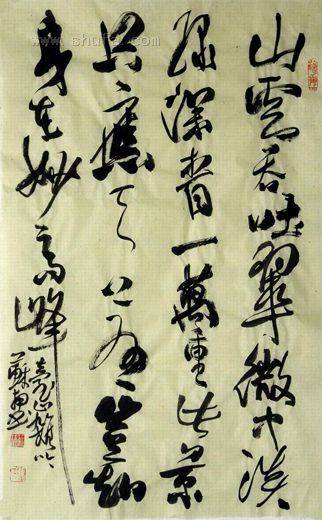 山雲吞吐翠微中淡
綠深青一萬重此景
只應天上有豈知
身在妙高峰